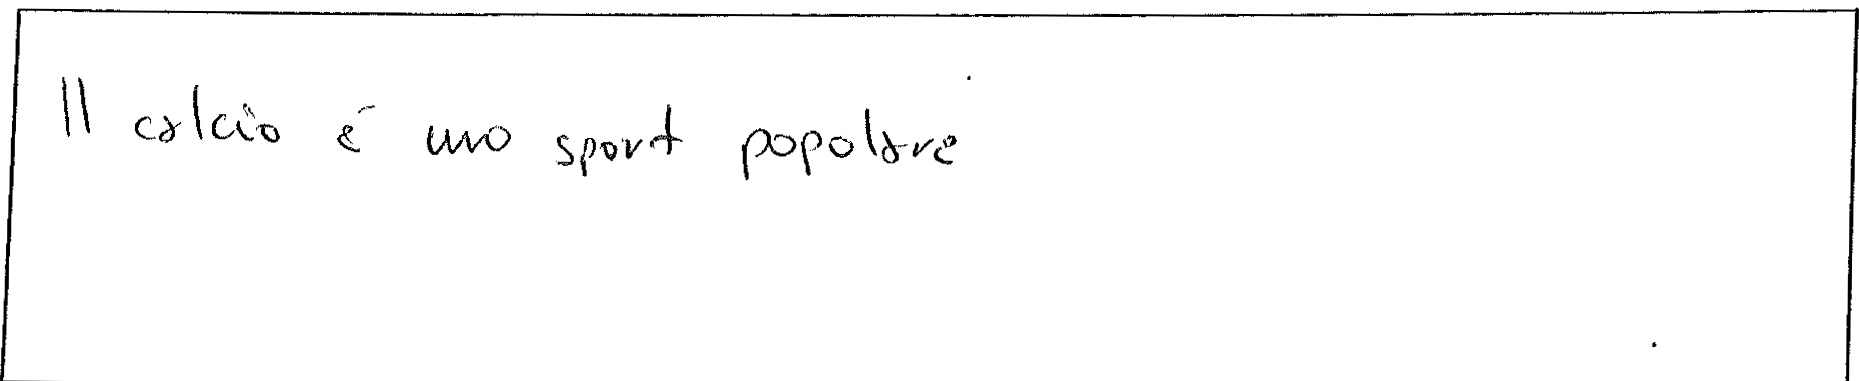 Il calcio è uno sport popolare